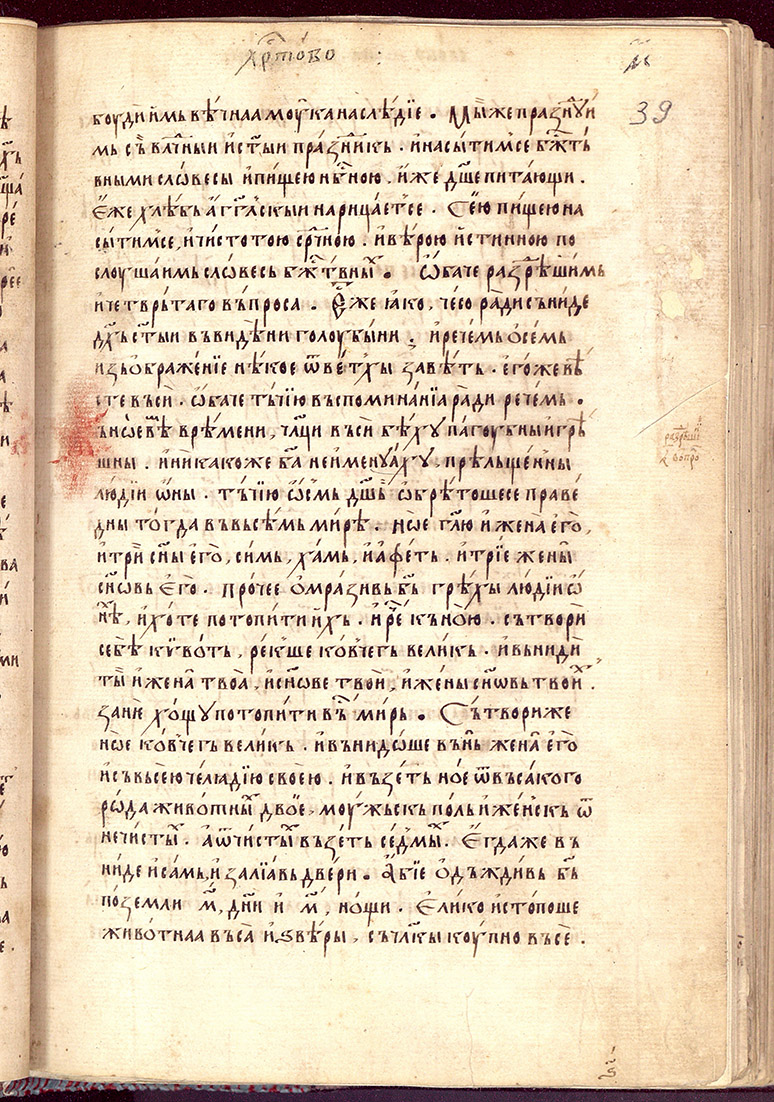 хр҇тово :
м҃
39
боуди и́мь вѣ́чнаа моу́ка наслѣ́дїе . Мы́ же празⷣнꙋи
мь съ влⷣчныи и҆ ст҃ыи пра́зⷣникь . и҆ насы́тимⸯсе бжⷭ҇тъ
вными сло́весы и҆ пи́щею нбⷭ҇ною . и҆́же дш҃е пита́ющи .
Е҆́же хлѣ́бь а҆́гг҃лскыи нарица́етⸯсе . Се́ю пи́щею на
сы́тимⸯсе , и҆ чи́стотою срⷣчною . и҆ вѣ́рою и҆́стинною по
слоу́шаимь сло́весь бжⷭ҇твныⷯ . Ѡ҆́баче разⷣрѣ́шимь
и҆ четврь́таго въпроса . Е҆́же ꙗ҆ко , че́со ра́ди съни́де
дх҃ь ст҃ыи въ видѣ́ни голоуби́ни . и҆ рече́мь о҆ се́мь
и҆зьѡбраже́нїе нѣ́кое ѿ ве́тхы завѣ́ть . е҆го́же вѣ́
сте въсѝ . ѡ҆́баче тъ́чїю въспомина́нїа ра́ди рече́мь .
чл҃ци въси̏ бѣ́хꙋ па́гоубныи гѣ
шны . и҆ ника́коже ба҃ не и҆менꙋа́хꙋ . прѣльще́нны
лю́дїи ѡ҆́ны . тъ́чїю ѡ҆́смь дш҃ь ѡ҆брѣ́тошесе праве́
дны то́гда въ въсе́мь ми́рѣ . но́е гл҃ю и҆ жена̀ е҆го̀ ,
и҆ трѝ сн҃ы е҆го̀ , си́мь , ха́мь , и҆ а҆фе́ть . и҆ трїе жены̀
сн҃овь е҆го̀ . про́чее ѡ҆мра́зивь бь҃ грѣ́хы лю́дїи ѡ҆
нѣⷯ , и҆ хо́те потопи́ти и҆́хь . и҆ реⷱ҇ къ но́ю . сътворѝ
себѣ̀ кѵ҆во́ть , ре́кꙋше ковче́гь вели́кь . и҆ вънидѝ
ты̀ и҆ жена̀ твоа̀ , и҆ сн҃ове твоѝ , и҆ же́ны сн҃овь твоиⷯ .
зане́ хо́щꙋ потопи́ти въⷭ҇ ми́рь . Сътвори́ же
но́е ковче́гь вели́кь . и҆ вънидо́ше въ нь̀ жена̀ е҆го̀
и҆ съ въсе́ю че́лꙗдїю свое́ю . и҆ възе́ть но́е ѿ въса́кого
ро́да живо́тныⷯ дво́е , моу́жьскь по́ль и҆ же́нскь ѿ
нечи́стыⷯ . а҆ ѿ чи́стыⷯ възе́ть се́дмыⷯ . Е҆гда́ же въ
ни́де и҆ са́мь , и҆ залїа́вь двери . А҆́бїе ѡ҆дъжди́вь бь҃
по земли м҃ , дн҃и и҆ м҃ , но́щи . Е҆ли́ко и҆стопо́ше
живо́тнаа въса̀ и҆ ѕвѣ́ры , съ чл҃кы коу́пно въсѐ .